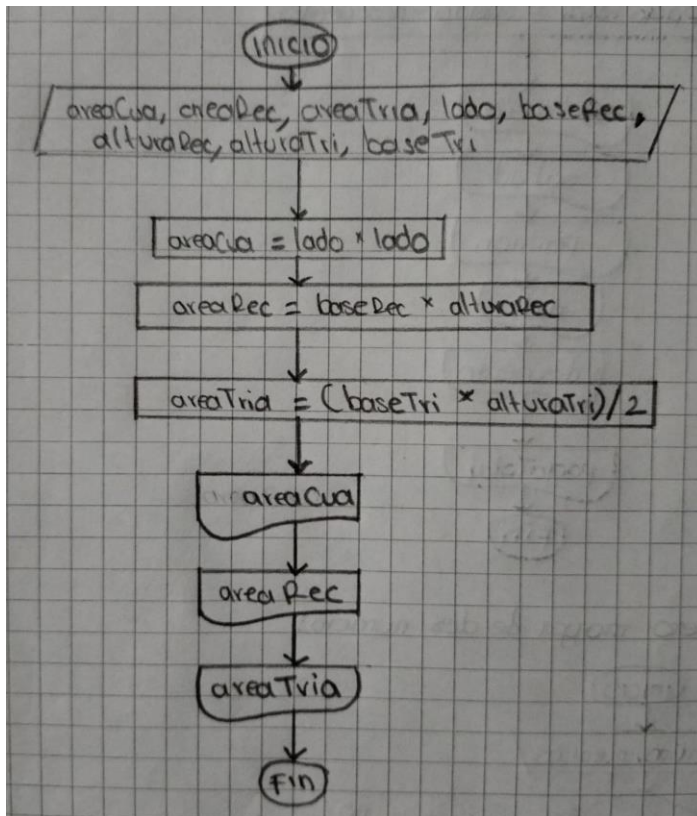 inicio
areaCua, areaRec, areaTria, lado, baseRec,
alturaRec, alturaTri, baseTri
areaCua = lado * lado
areaRec = baseRec * alturaRec
areaTria = (baseTri * alturaTri)/2
areaCua
areaRec
areaTria
Fin